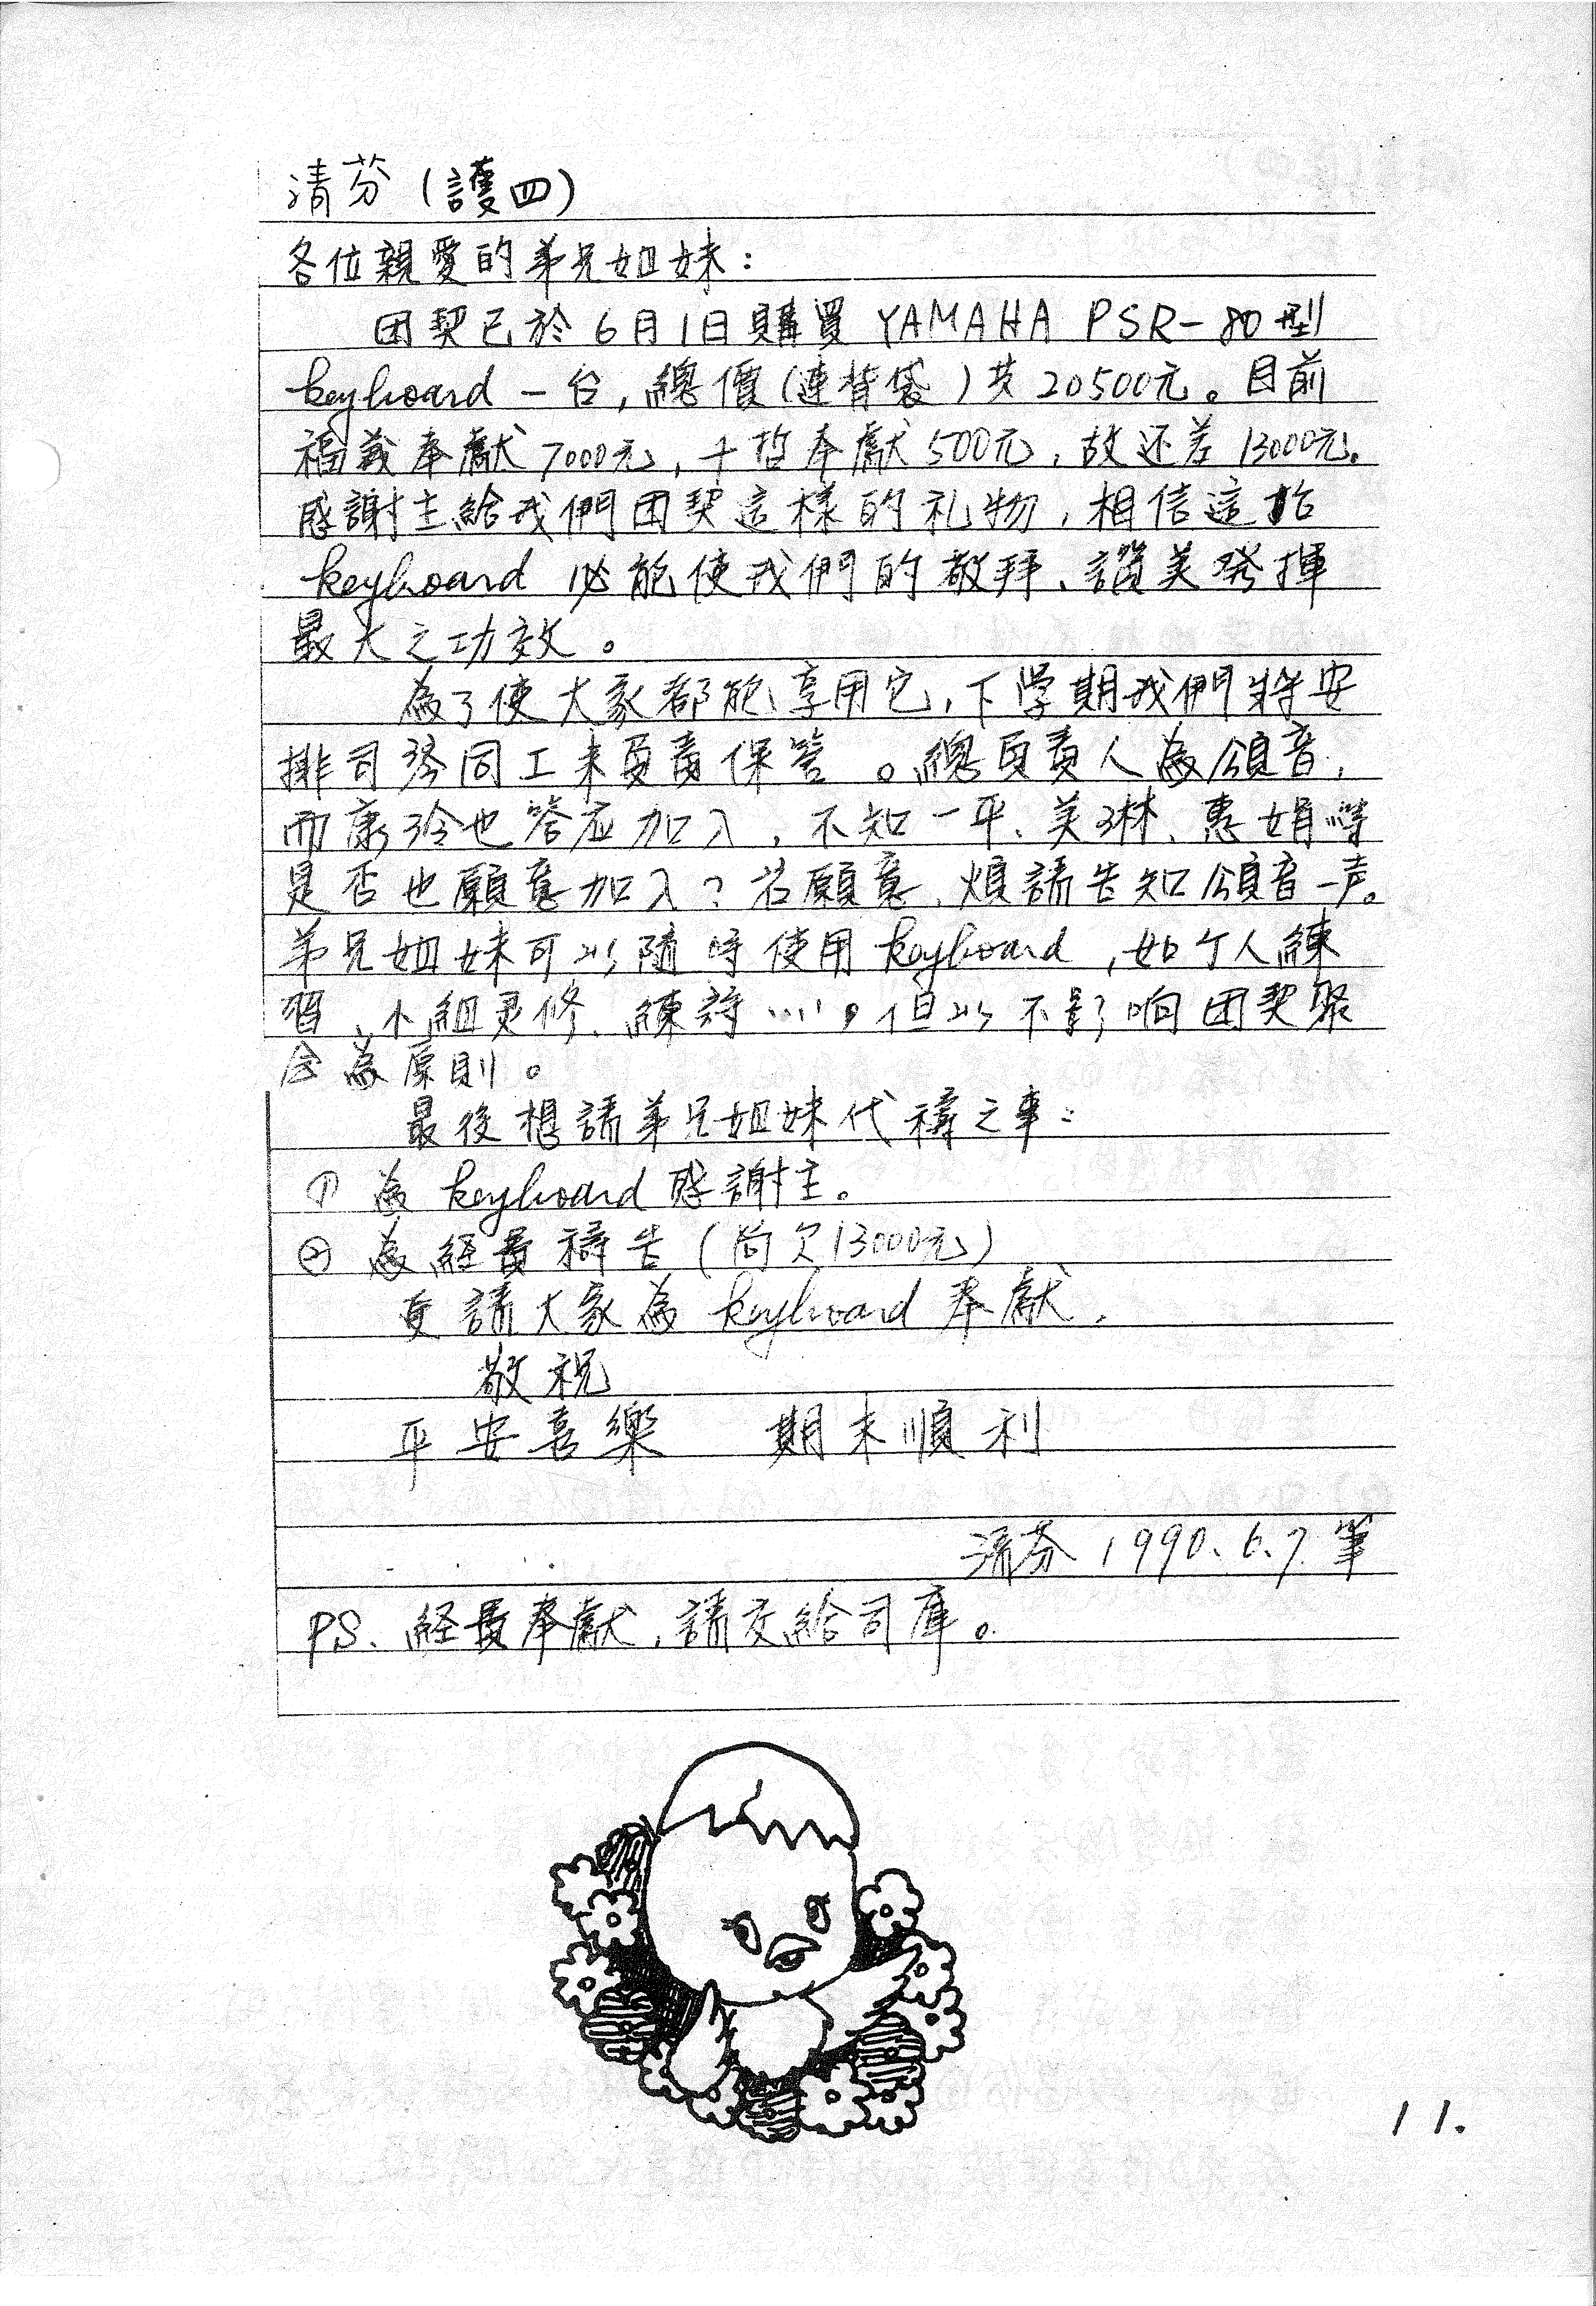 清芬(護四)
各位親愛的弟兄姐妹:
团契已於6月1日購買 YAMAHA PSR-80型
keyboard 一台,總價(連背袋)共20500元。目前
福箴奉獻7000元,十哲奉獻500元,故还差13000元。
感謝主給我們团契這樣的礼物,相信這抬
keyboard 必能使我們的敬拜、讚美發揮
最大之功效。
為了使大家都能享用它,下学期我們將安
排司琴同工來負責保管。總負責人為頌音,
而康玲也答应加入,不知一平、美琳、惠娟等
是否也願意加入?若願意、煩請告知頌音一声。
弟兄姐妹可以隨時使用 keyboard,如个人練
習、小組灵修、練詩……,但以不影响团契聚
会為原則。
最後想請弟兄姐妹代禱之事:
① 為 keyboard 感謝主。
② 為經費禱告(尚欠13000元)
更請大家為 keyboard 奉獻.
敬祝
平安喜樂 期末順利
清芬 1990.6.7.筆
PS、經費奉獻,請交給司庫。
11.